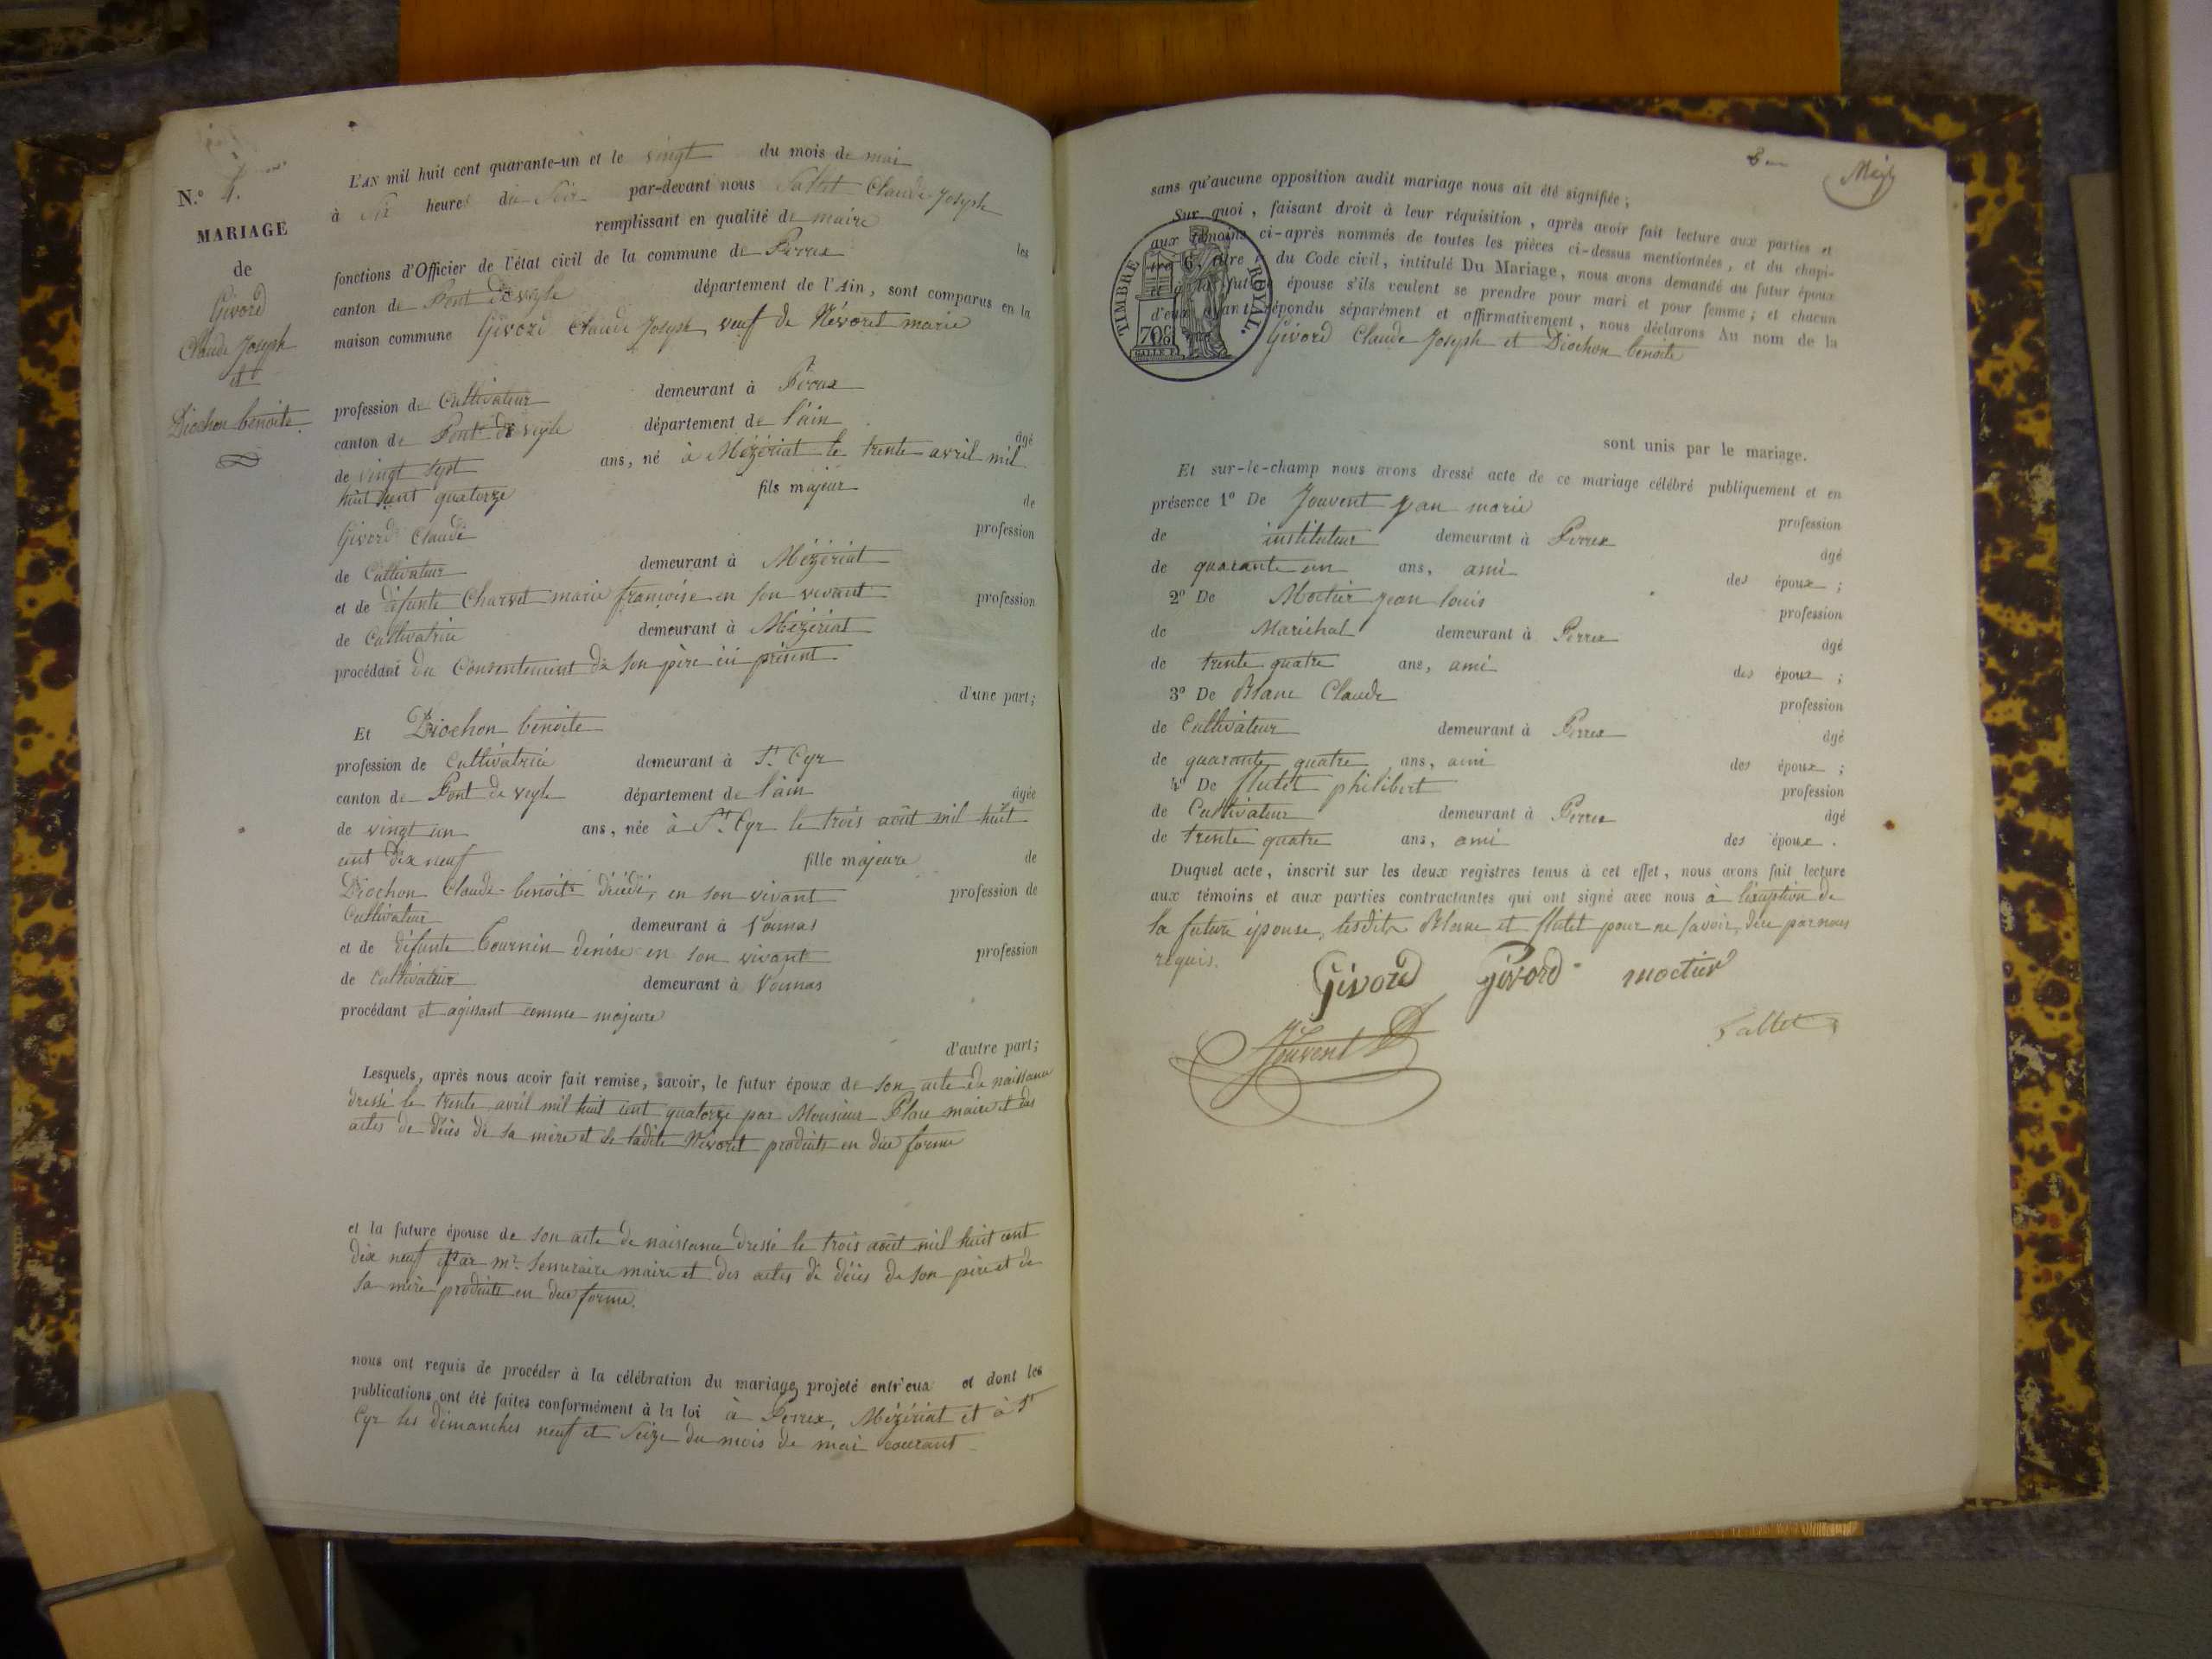 N.° 4.
MARIAGE
de
Givord
Claude Joseph
et
Diochon benoite
L'AN mil huit cent quarante-un et le vingt du mois de mai
à six heures du soir par-devant nous Sallet Claude Joseph
remplissant en qualité de maire les
fonctions d'Officier de l'état civil de la commune de Perrex
canton de Pont de veyle département de l'Ain, sont comparus en la
maison commune Givord Claude Joseph veuf de Névoret marie
profession de Cultivateur demeurant à Perrex
canton de Pont de veyle département de l'ain âgé
de vingt sept ans, né à Mézériat le trente avril mil
huit cent quatorze fils majeur de
Givord Claude profession
de Cultivateur demeurant à Mézériat
et de défunte Charvet marie françoise en son vivant profession
de Cultivatrice demeurant à Mézériat
procédant du Consentement de son père ici présent
d'une part;
Et Diochon benoite
profession de Cultivatrice demeurant à St. Cyr
canton de Pont de veyle département de l'ain âgée
de vingt un ans, née à St. Cyr le trois août mil huit
cent dix neuf fille majeure de
Diochon Claude-benoit décédé, en son vivant profession de
Cultivateur demeurant à Vonnas
et de défunte Tournin denise en son vivant profession
de cultivatrice demeurant à Vonnas
procédant et agissant comme majeure
d'autre part;
Lesquels, après nous avoir fait remise, savoir, le futur époux de son acte de naissance
dressé le trente avril mil huit cent quatorze par Monsieur Place maire et des
actes de décès de sa mère et de ladite Névoret produits en due forme
et la future épouse de son acte de naissance dressé le trois août mil huit cent
dix neuf par mr. maire et des actes de décès de son père et de
sa mère produits en due forme.
nous ont requis de procéder à la célébration du mariage projeté entr'eux et dont les
publications ont été faites conformément à la loi à Perrex, Mézériat et à St
Cyr les dimanches neuf et seize du mois de mai courant
sans qu'aucune opposition audit mariage nous ait été signifiée;
Sur quoi, faisant droit à leur réquisition, après avoir fait lecture aux parties et
aux témoins ci-après nommés de toutes les pièces ci-dessus mentionnées, et du chapi-
tre 6, titre du Code civil, intitulé Du Mariage, nous avons demandé au futur époux
et à la future épouse s'ils veulent se prendre pour mari et pour femme; et chacun
d'eux ayant répondu séparément et affirmativement, nous déclarons Au nom de la
Givord Claude Joseph et Diochon benoite
TIMBRE ROYAL.
70c
sont unis par le mariage.
Et sur-le-champ nous avons dressé acte de ce mariage célébré publiquement et en
présence 1° De Jouvent Jean marie profession
de instituteur demeurant à Perrex âgé
de quarante un ans, ami des époux;
2° De Moctier jean louis profession
de Maréchal demeurant à Perrex âgé
de trente quatre ans, ami des époux;
3° De Blanc Claude profession
de Cultivateur demeurant à Perrex âgé
de quarante quatre ans, ami des époux;
4° De flutet philibert profession
de Cultivateur demeurant à Perrex âgé
de trente quatre ans, ami des époux.
Duquel acte, inscrit sur les deux registres tenus à cet effet, nous avons fait lecture
aux témoins et aux parties contractantes qui ont signé avec nous à l'exception de
la future épouse, lesdits Blanc et flutet pour ne savoir, de ce par nous
requis.
Givord Givord moctier
Jouvent Sallet